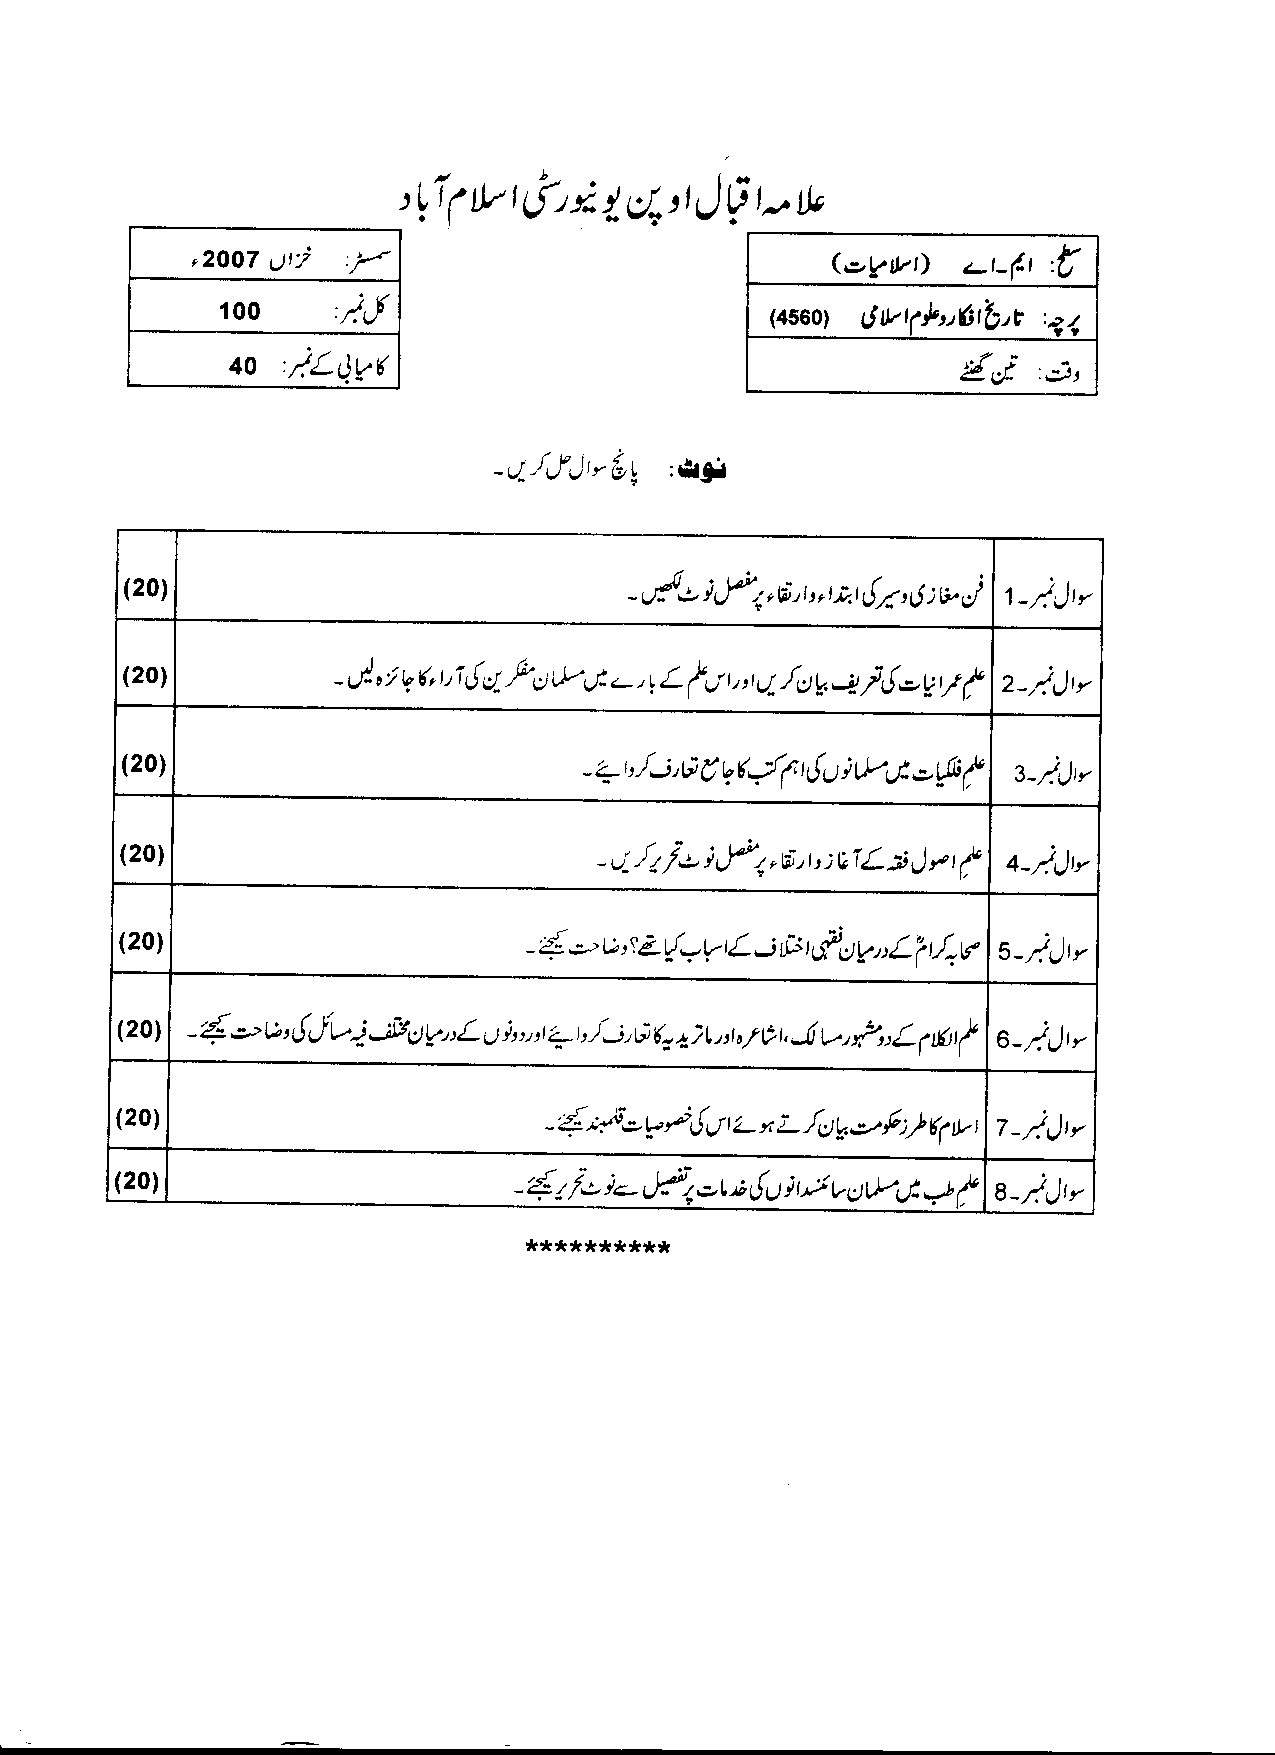 علامہ اقبال اوپن یونیورسٹی اسلام آباد
سطح: ایم-اے (اسلامیات)
سمسٹر: خزاں 2007ء
پرچہ: تاریخ افکار و علوم اسلامی (4560)
کل نمبر: 100
وقت: تین گھنٹے
کامیابی کے نمبر: 40
نوٹ: پانچ سوال حل کریں۔
سوال نمبر-1 فن مغازی و سیر کی ابتداء و ارتقاء پر مفصل نوٹ لکھیں۔ (20)
سوال نمبر-2 علمِ عمرانیات کی تعریف بیان کریں اور اس علم کے بارے میں مسلمان مفکرین کی آراء کا جائزہ لیں۔ (20)
سوال نمبر-3 علمِ فلکیات میں مسلمانوں کی اہم کتب کا جامع تعارف کروایئے۔ (20)
سوال نمبر-4 علمِ اصول فقہ کے آغاز و ارتقاء پر مفصل نوٹ تحریر کریں۔ (20)
سوال نمبر-5 صحابہ کرامؓ کے درمیان فقہی اختلاف کے اسباب کیا تھے؟ وضاحت کیجئے۔ (20)
سوال نمبر-6 علم الکلام کے دو مشہور مسالک، اشاعرہ اور ماتریدیہ کا تعارف کروایئے اور دونوں کے درمیان مختلف فیہ مسائل کی وضاحت کیجئے۔ (20)
سوال نمبر-7 اسلام کا طرز حکومت بیان کرتے ہوئے اس کی خصوصیات قلمبند کیجئے۔ (20)
سوال نمبر-8 علمِ طب میں مسلمان سائنسدانوں کی خدمات پر تفصیل سے نوٹ تحریر کیجئے۔ (20)
**********